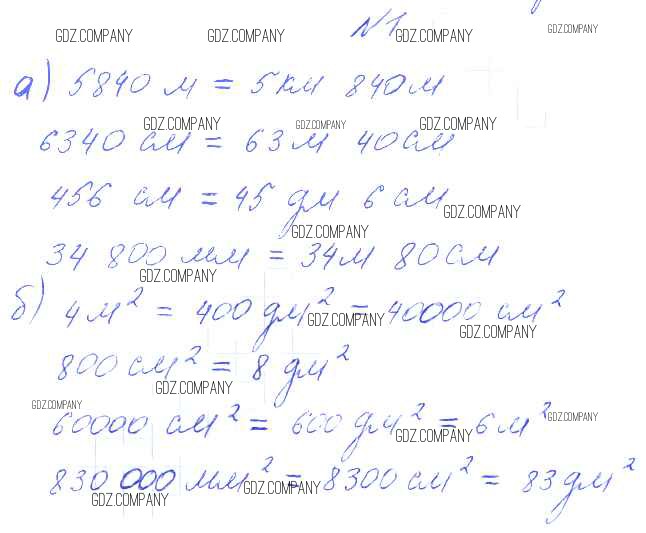 GDZ.COMPANY GDZ.COMPANY №1 GDZ.COMPANY GDZ.COMPANY
а) 5840 м = 5 км 840 м
GDZ.COMPANY GDZ.COMPANY GDZ.COMPANY
6340 см = 63 м 40 см
456 см = 45 дм 6 см
GDZ.COMPANY
GDZ.COMPANY
34 800 мм = 34 м 80 см
GDZ.COMPANY
б) 4 м² = 400 дм² = 40000 см²
GDZ.COMPANY GDZ.COMPANY
800 см² = 8 дм²
GDZ.COMPANY
GDZ.COMPANY GDZ.COMPANY
60000 см² = 600 дм² = 6 м²
GDZ.COMPANY
830 000 мм² = 8300 см² = 83 дм²
GDZ.COMPANY GDZ.COMPANY